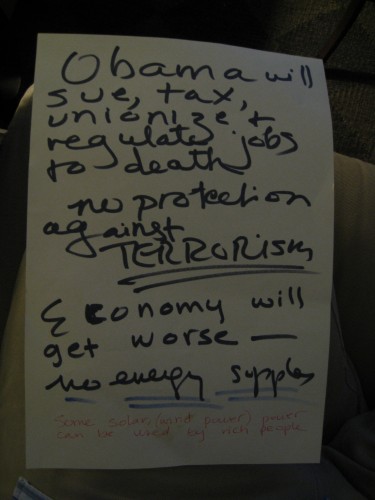 Obama will
sue, tax,
unionize +
regulate jobs
to death
no protection
against
TERRORISM
Economy will
get worse —
no energy supples
Some solar, (wind power) power
can be used by rich people